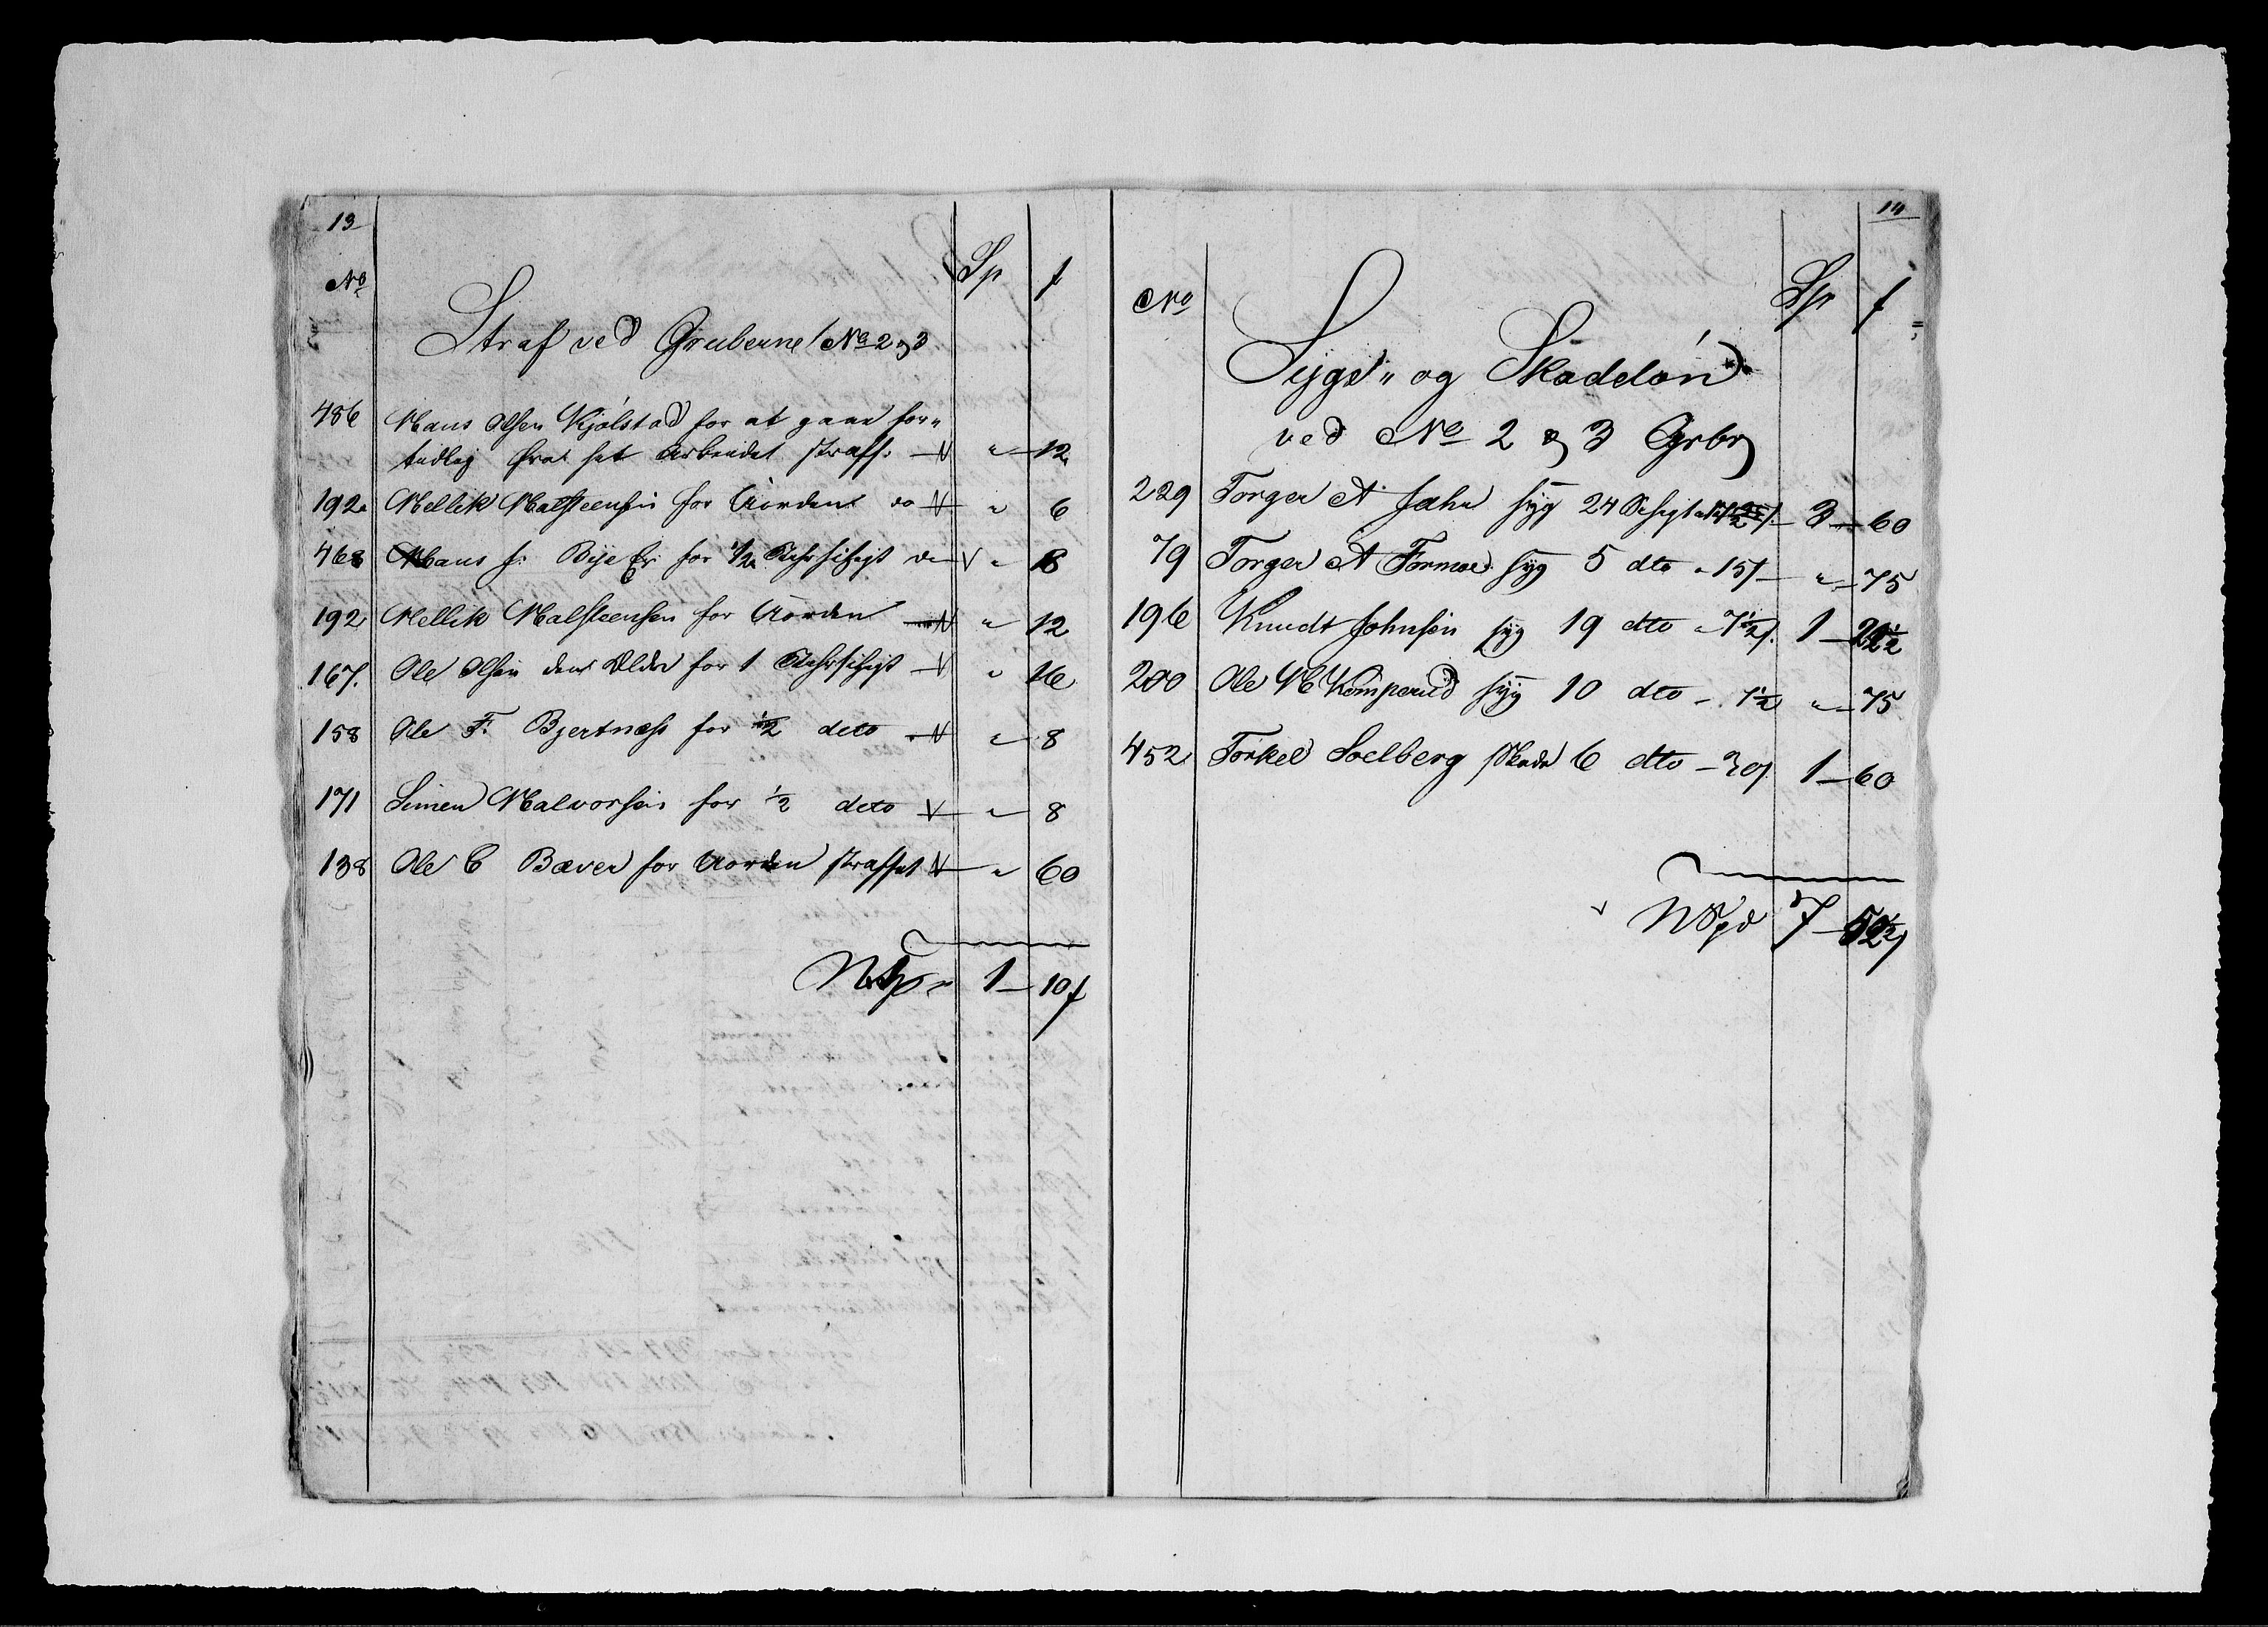 13
No Sp f
Straf ved Gruberne No 2 og 3
486 Hans Olsen Kjölstad for at gaae for„
tidlig fra sit Arbeidet straff: „ 12
192 Mellik Halsteensen for Uorden do „ 6
468 Hans J: Bye Er: for 1/2 do „ 8
192 Mellik Halsteensen for Uorden „ 12
167. Ole Olsen den Eldre for 1 „ 16
158 Ole F. Bjertnæss for 1/2 deto „ 8
171 Simen Halvorsen for 1/2 deto „ 8
138 Ole C Bæver for Uorden straffet „ 60
1 — 10 f
14
No Sp f
Syge„ og Skadelön
ved No 2 og 3 Grbr
229 Torger A Jahr syg 24 3 — 60
79 Torger A Formoe syg 5 dto „ 15 f „ — 75
196 Knudt Johnsen syg 19 dto „ 7 1/2 f. 1 — 22 1/2
280 Ole H Kemperud syg 10 dto – 7 1/2 „ — 75
452 Torkel Soelberg skade 6 dto – 30 f 1 — 60
Spd 7 — 52 1/2 f